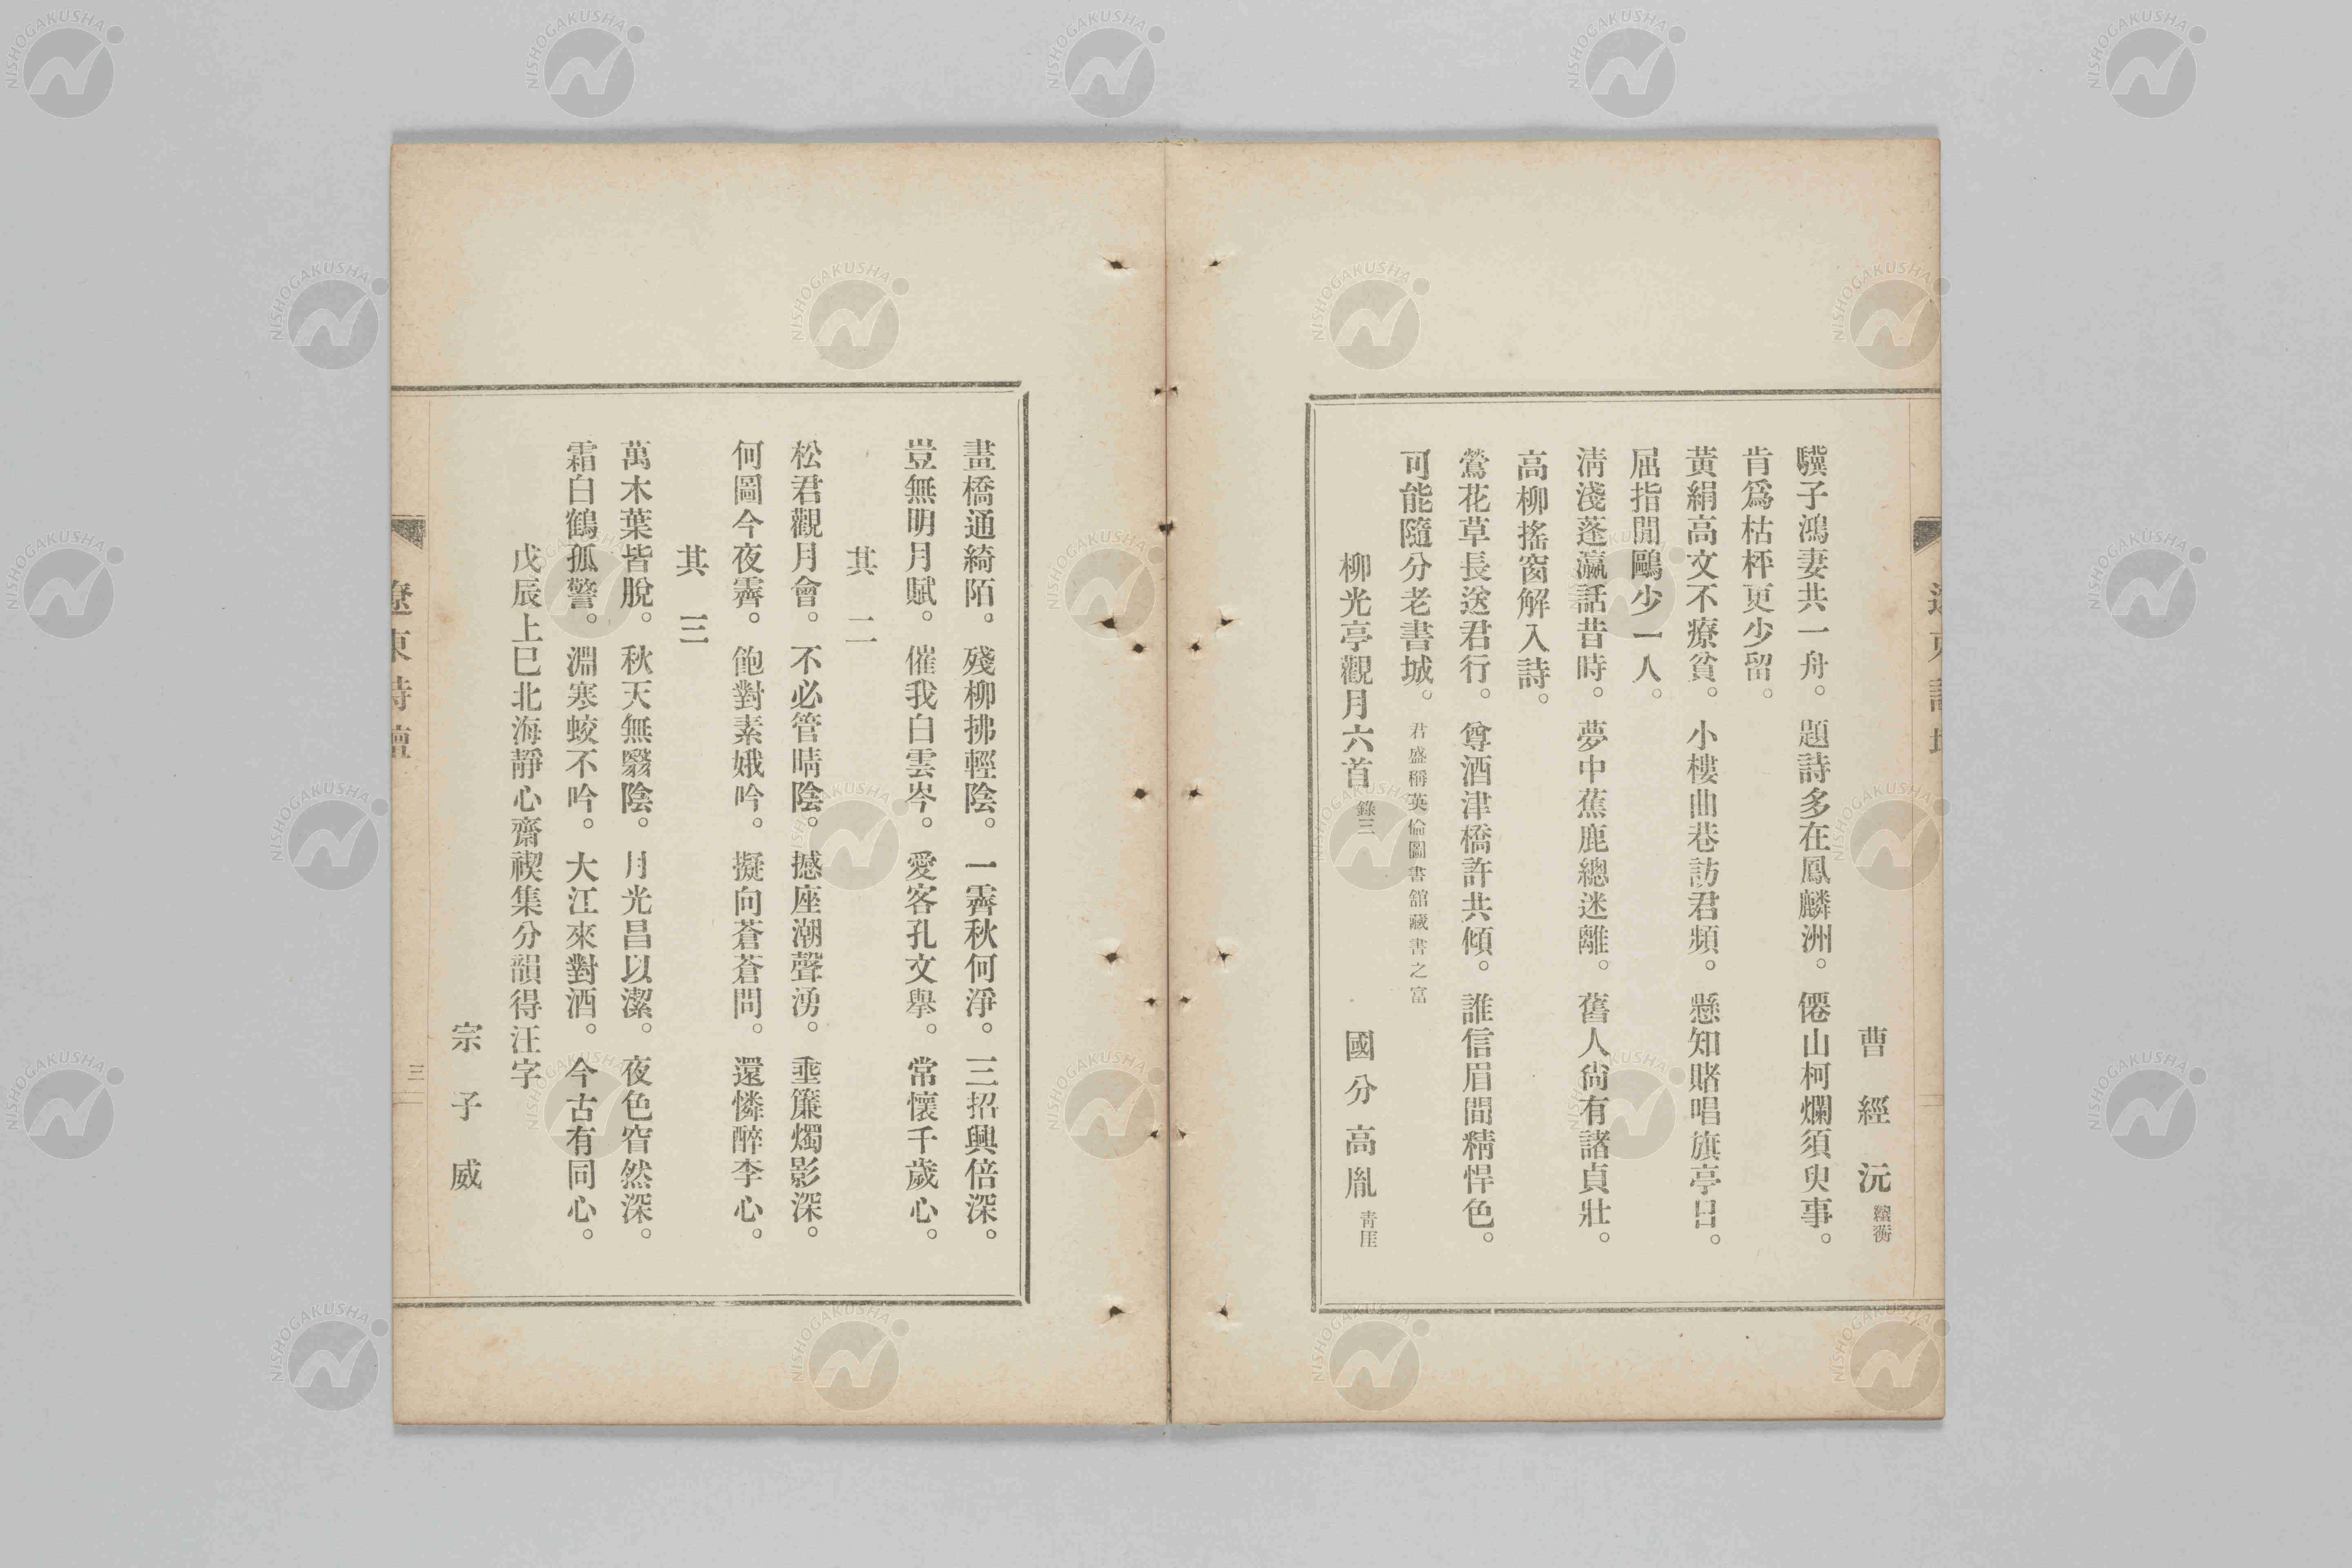 曹經沅 纕蘅
驥子鴻妻共一舟。題詩多在鳳麟洲。僊山柯爛須臾事。
肯爲枯枰更少留。
黃絹高文不療貧。小樓曲巷訪君頻。懸知賭唱旗亭日。
屈指閒鷗少一人。
淸淺蓬瀛話昔時。夢中蕉鹿總迷離。舊人尙有諸貞壯。
高柳搖窗解入詩。
鶯花草長送君行。尊酒津橋許共傾。誰信眉間精悍色。
可能隨分老書城。君盛稱英倫圖書舘藏書之富
柳光亭觀月六首 錄三 國分高胤 靑厓
畫橋通綺陌。殘柳拂輕陰。一霽秋何淨。三招興倍深。
豈無明月賦。催我白雲岑。愛客孔文擧。常懷千歲心。
其二
松君觀月會。不必管晴陰。撼座潮聲湧。垂簾燭影深。
何圖今夜霽。飽對素娥吟。擬向蒼蒼問。還憐醉李心。
其三
萬木葉皆脫。秋天無翳陰。月光昌以潔。夜色窅然深。
霜白鶴孤警。淵寒蛟不吟。大江來對酒。今古有同心。
戊辰上巳北海靜心齋禊集分韻得汪字
宗子威
遼東詩壇
三
NISHOGAKUSHA